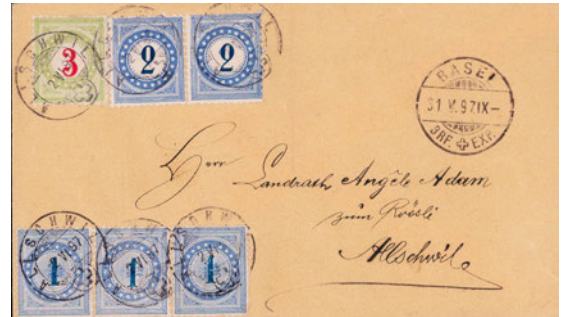 3 2 2
ALLSCHWIL
BASEL
31 V. 97 IX-
BRF. EXP.
Herr
Landrath Angèle Adam
zum Rössli
Allschwil
1 1 1
ALLSCHWIL